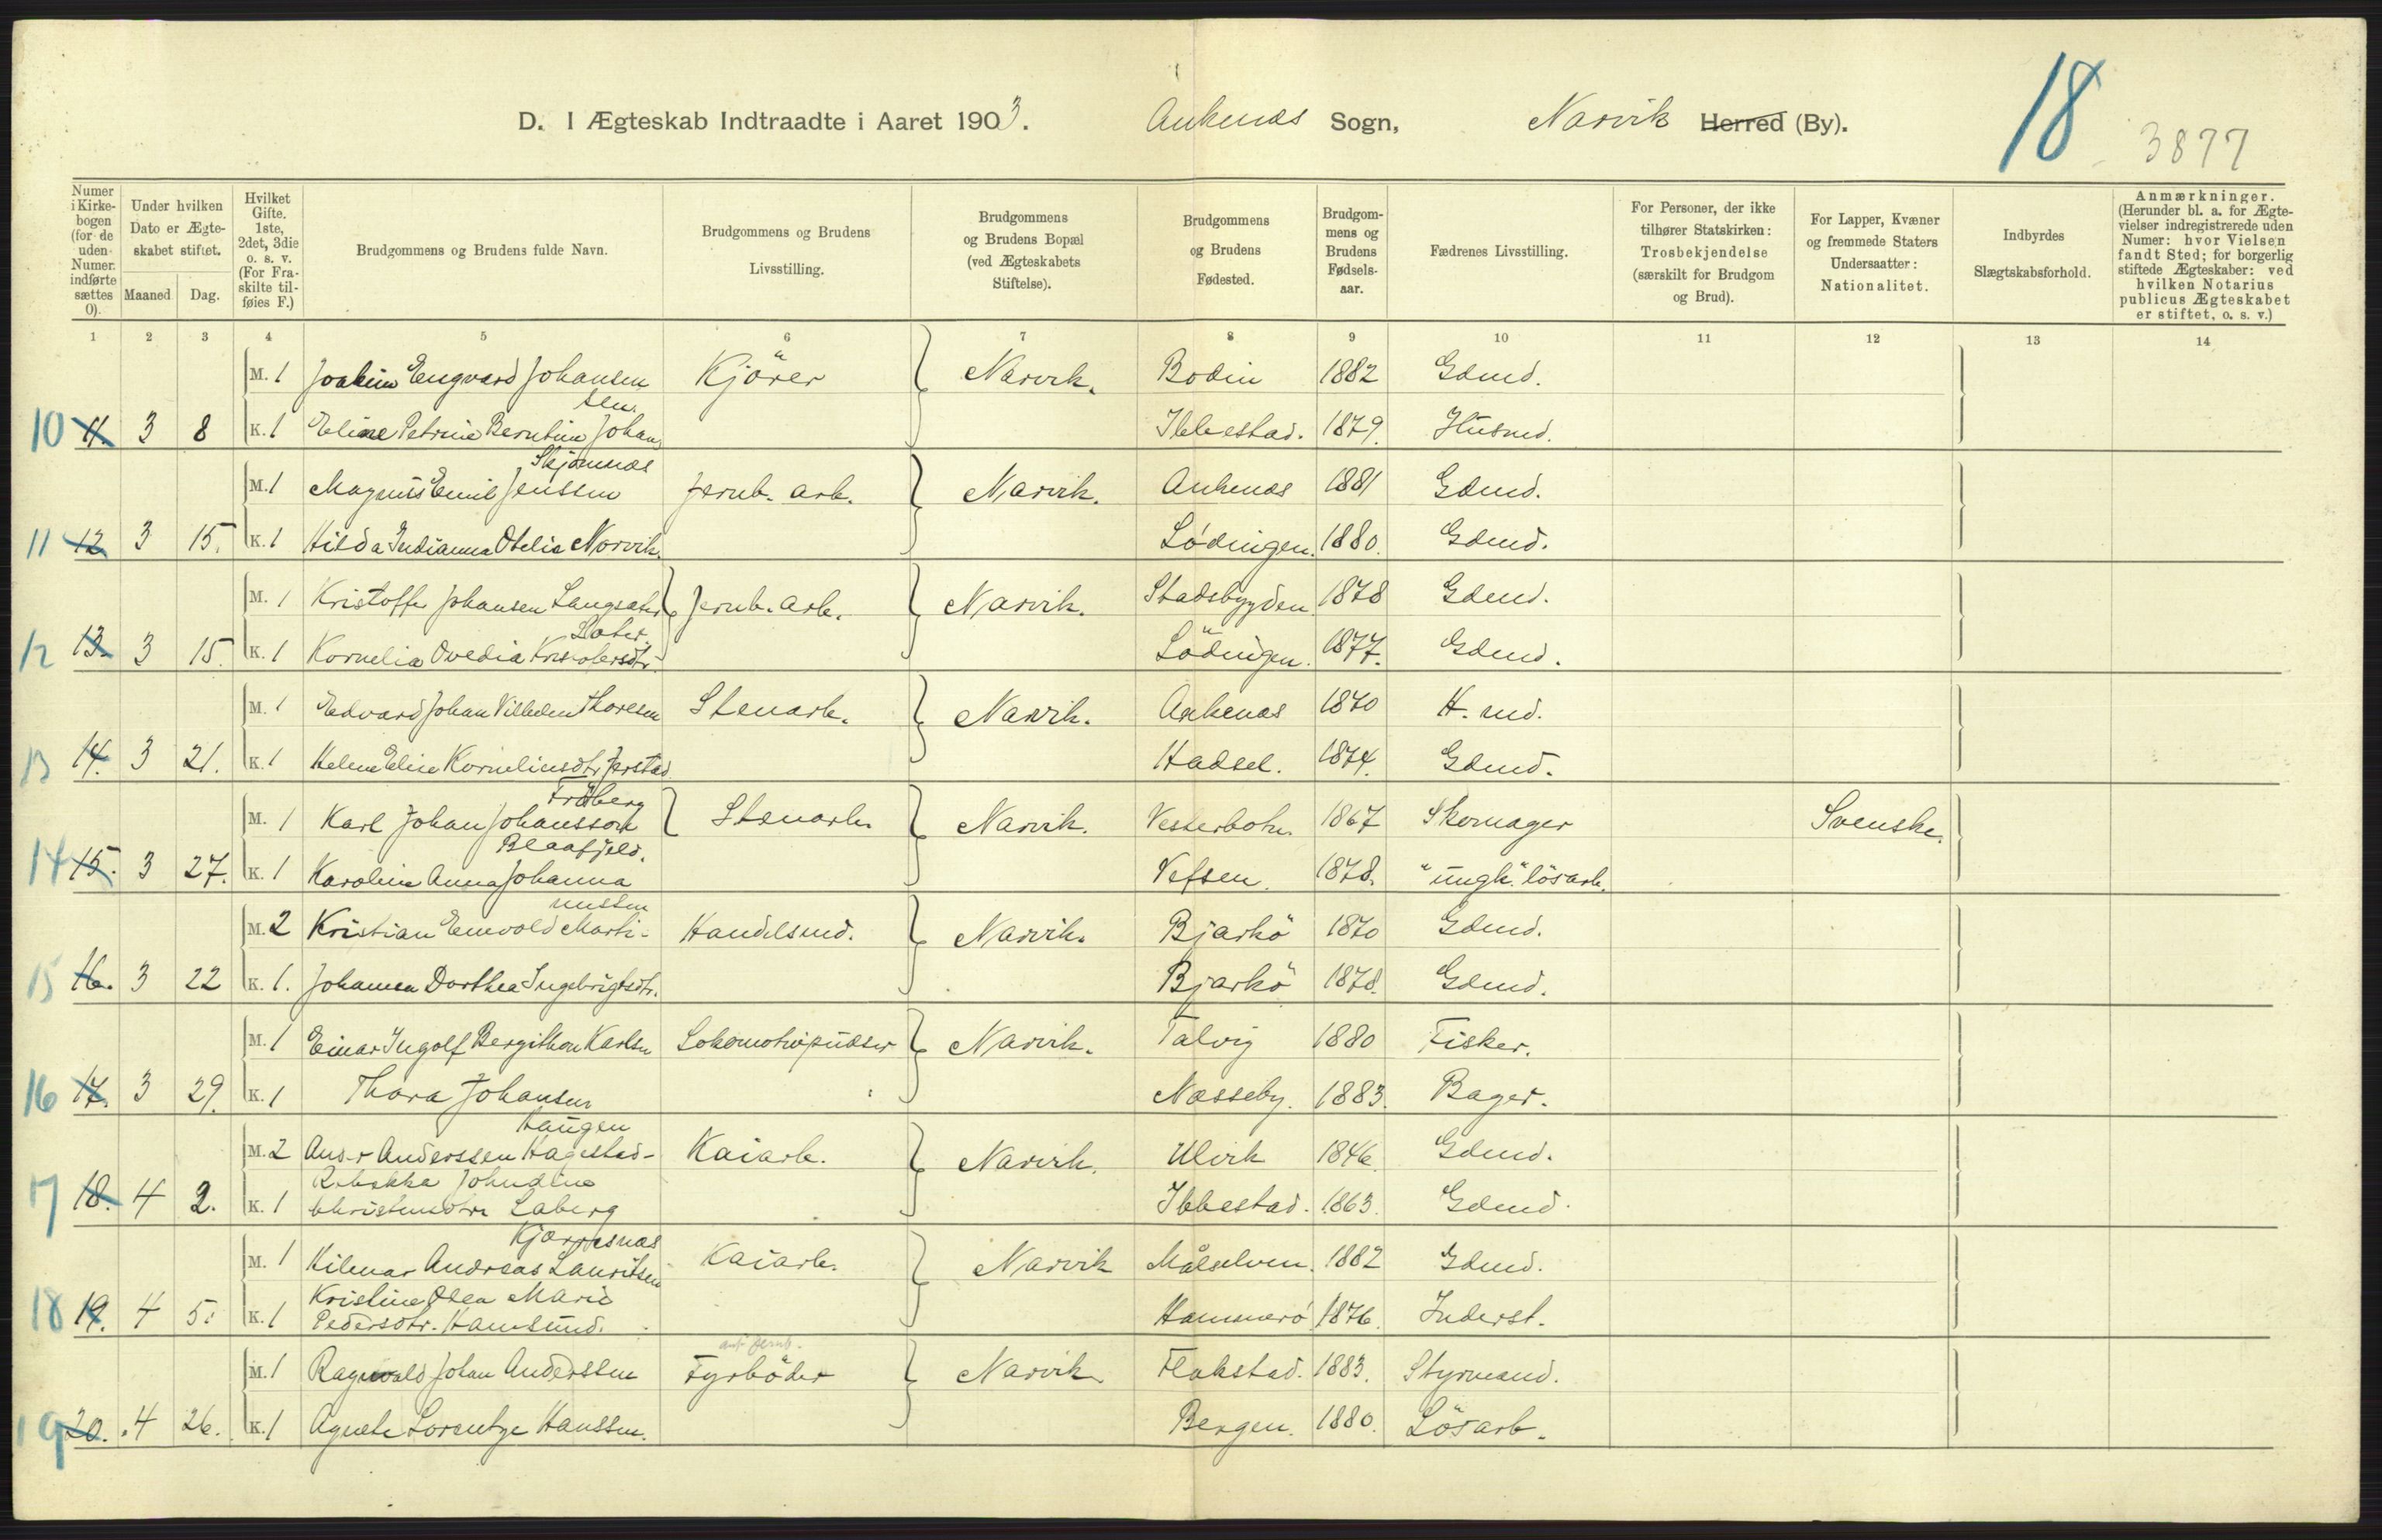 18 3877
D. I Ægteskab Indtraadte i Aaret 1903. Ankenæs Sogn, Narvik Herred (By).
Numer i Kirkebogen (for de uden Numer indførte sættes 0).
Under hvilken Dato er Ægteskabet stiftet.
Maaned Dag.
Hvilket Gifte. 1ste, 2det, 3die o. s. v. (For Fraskilte tilføies F.)
Brudgommens og Brudens fulde Navn.
Brudgommens og Brudens Livsstilling.
Brudgommens og Brudens Bopæl (ved Ægteskabets Stiftelse).
Brudgommens og Brudens Fødested.
Brudgommens og Brudens Fødselsaar.
Fædrenes Livsstilling.
For Personer, der ikke tilhører Statskirken: Trosbekjendelse (særskilt for Brudgom og Brud).
For Lapper, Kvæner og fremmede Staters Undersaatter: Nationalitet.
Indbyrdes Slægtskabsforhold.
Anmærkninger. (Herunder bl. a. for Ægtevielser indregistrerede uden Numer: hvor Vielsen fandt Sted; for borgerlig stiftede Ægteskaber: ved hvilken Notarius publicus Ægteskabet er stiftet, o. s. v.)
1 2 3 4 5 6 7 8 9 10 11 12 13 14
M. 1 Joakim Engvard Johansen Kjörer Narvik. Bodin 1882 Gdmd.
sen.
10 11. 3 8 K. 1 Eline Petrine Berntine Johan Ibbestad. 1879. Husmd.
Skjomnæs
M. 1 Magnus Emil Jenssen Jernb. arb. Narvik. Ankenæs 1881 Gdmd.
11 12 3 15. K. 1 Hilda Indianna Otelie Norvik. Lødingen. 1880. Gdmd.
M. 1 Kristoffer Johansen Langsæter Jernb. arb. Narvik. Stadsbygden 1878 Gdmd.
12 13. 3 15. K. 1 Kornelia Ovedia Lödingen. 1877. Gdmd.
M. 1 Edvard Johan Vilhelm Thoresen Stenarb. Narvik. Ankenæs 1870 H. md.
13 14. 3 21. K. 1 Helene Elise Korneliusdtr Jerstad Hadsel. 1874. Gdmd.
Fröberg
M. 1 Karl Johan Johansson Stenarb. Narvik. Vesterbotn. 1867 Skomager Svenske.
Blaafjeld.
14 15. 3 27. K. 1 Karoline Anna Johanna Vefsen. 1878. "ungk." lösarb.
nussen
M. 2 Kristian Enevold Marti- Handelsmd. Narvik. Bjarkö 1870 Gdmd.
15 16. 3 22 K. 1. Johanna Dorthea Ingebrigtsdtr. Bjarkö 1878. Gdmd.
M. 1 Einar Ingolf Bergithon Karlsen Lokomotivpudser Narvik. Talvig 1880 Fisker.
16 17. 3 29. K. 1 Thora Johansen Næsseby. 1883. Bager.
Haugen
M. 2 Anderssen Hagestad- Kaiarb. Narvik. Ulvik 1846. Gdmd.
Rebekka Johndine
17 18. 4 2. K. 1 Christensdtr Laberg Ibbestad. 1863. Gdmd.
Kjærresnæs
M. 1 Hilmar Andreas Lauritsen Kaiarb. Narvik Målselven. 1882 Gdmd.
Kristine Olea Marie
18 19. 4 5. K. 1 Pedersdtr. Hamsund. Hammerö 1876. Inderst.
M. 1 Ragnvald Johan Anderssen Fyrböder Narvik Flakstad. 1883. Styrmand.
19 20. 4 26. K. 1 Agnete Lorentze Hanssen. Bergen. 1880. Lösarb.